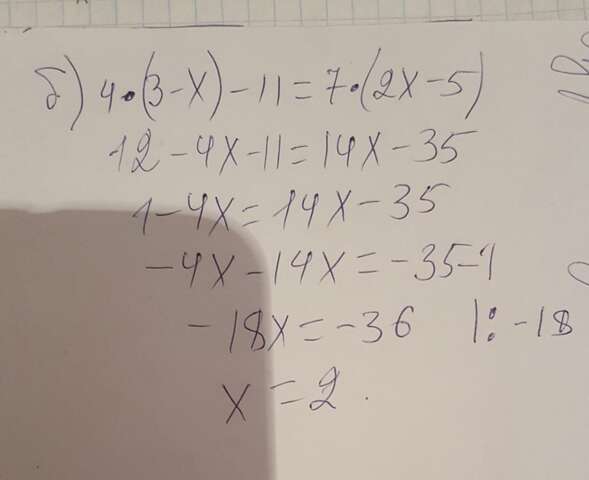 б) 4·(3-x)-11=7·(2x-5)
12-4x-11=14x-35
1-4x=14x-35
-4x-14x=-35-1
-18x=-36 |:-18
x=2.